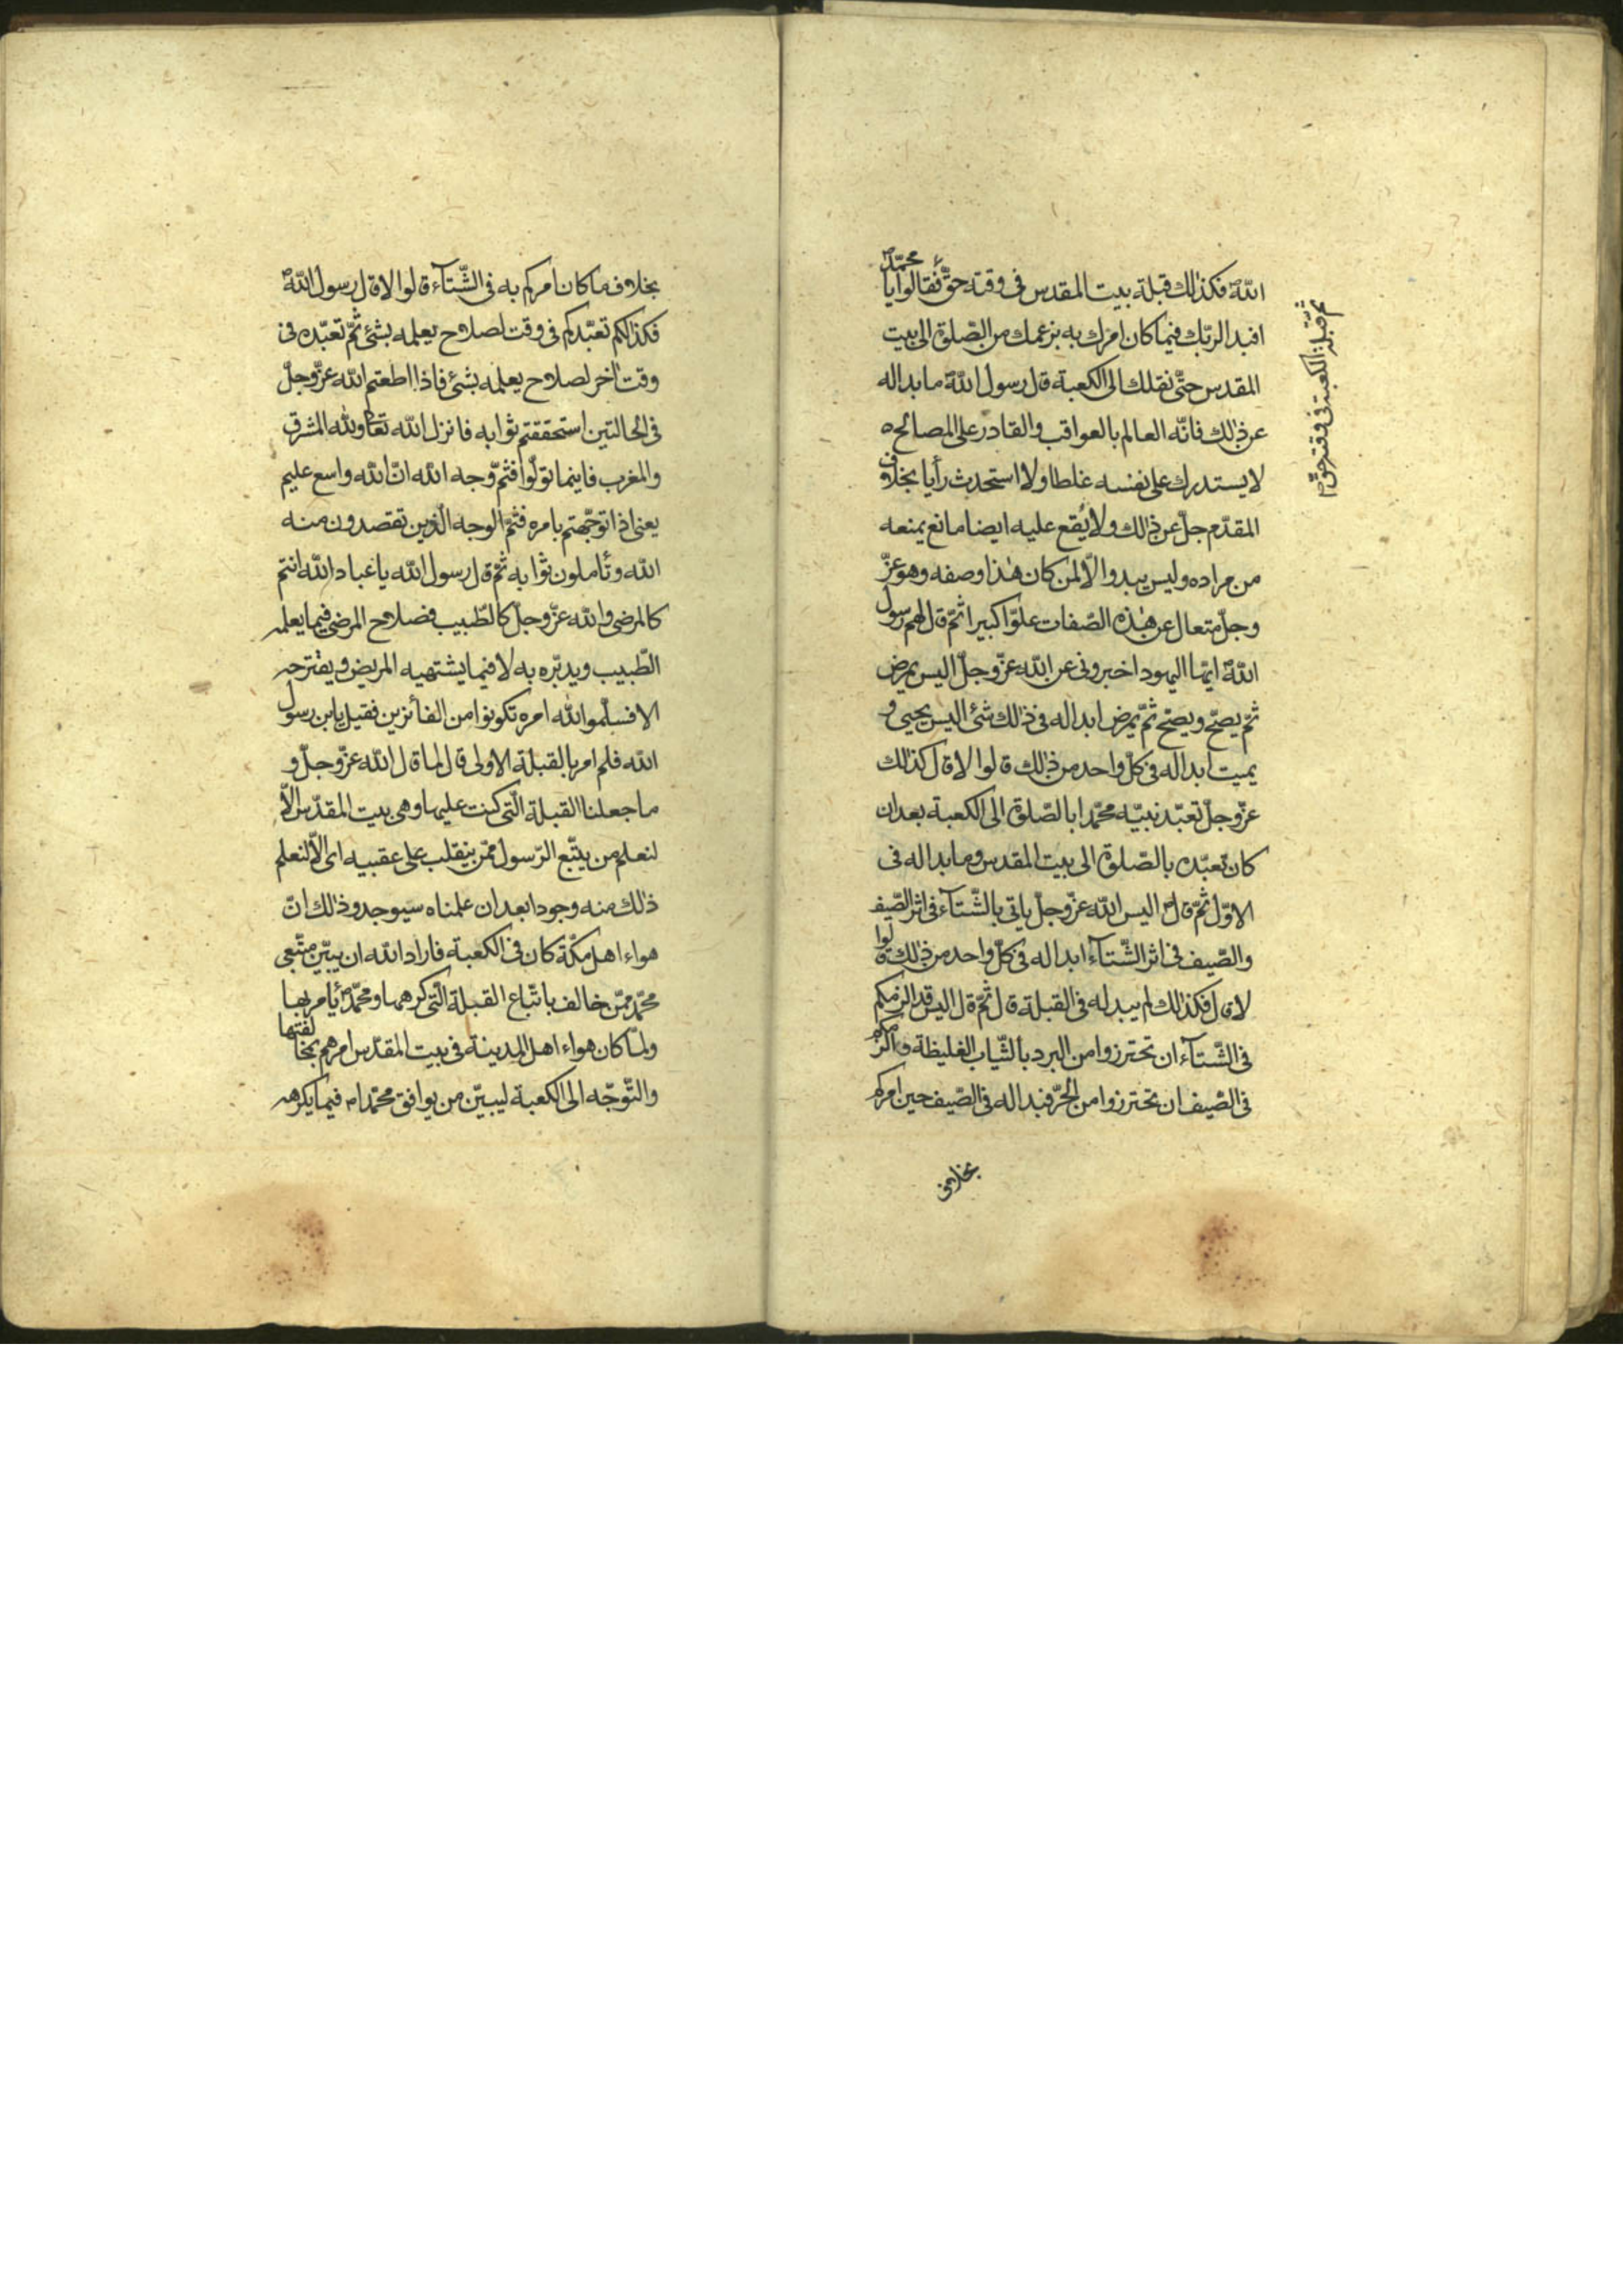 اللّه فكذلك قبلة بيت المقدس فى وقته حقّ فقالوا يا محمّد
افبدا لربّك فيما كان امرك به بزعمك من الصّلوة الى بيت
المقدس حتّى نقلك الى الكعبة قال رسول اللّه ما بدا له
عن ذلك فانّه العالم بالعواقب والقادر على المصالح
لا يستدرك على نفسه غلطا ولا استحدث رأيا بخلاف
المقدّم جلّ عن ذلك ولا يقع عليه ايضا مانع يمنعه
من مراده وليس يبدوا الّا لمن كان هذا وصفه وهو عزّ
وجلّ متعال عن هذه الصّفات علوّا كبيرا ثمّ قال لهم رسول
اللّه ايّها اليهود اخبرونى عن اللّه عزّ وجلّ اليس يمرض
ثمّ يصحّ ويصحّ ثمّ يمرض ابدا له فى ذلك شئ اليس يحيى و
يميت ابدا له فى كلّ واحد من ذلك قالوا لا قال كذلك
عزّ وجلّ تعبّد نبيّه محمّدا بالصّلوة الى الكعبة بعد ان
كان تعبّده بالصّلوة الى بيت المقدس وما بدا له فى
الاوّل ثمّ قال اليس اللّه عزّ وجلّ ياتى بالشّتآء فى اثر الصّيف
والصّيف فى اثر الشّتآء ابدا له فى كلّ واحد من ذلك قالوا
لا قال فكذلك لم يبد له فى القبلة قال ثمّ قال اليس قد الزمكم
فى الشّتآء ان تحترزوا من البرد بالثّياب الغليظة والزمكم
فى الصّيف ان تحترزوا من الحرّ فبدا له فى الصّيف حين امركم
بخلاف
ثم قبلة الكعبة فى وقته حقّ
بخلاف ما كان امركم به فى الشّتآء قالوا لا قال رسول اللّه
فكذلكم تعبّدكم فى وقت لصلاح يعلمه بشئ ثمّ تعبّده فى
وقت اخر لصلاح يعلمه بشئ فاذا اطعتم اللّه عزّ وجلّ
فى الحالتين استحققتم ثوابه فانزل اللّه تعا وللّه المشرق
والمغرب فاينما تولّوا فثمّ وجه اللّه انّ اللّه واسع عليم
يعنى اذا توجّهتم بامره فثمّ الوجه الّذين تقصدون منه
اللّه وتأملون ثوابه ثمّ قال رسول اللّه يا عباد اللّه انتم
كالمرضى واللّه عزّ وجلّ كالطّبيب فصلاح المرضى فيما يعلمه
الطّبيب ويدبّره به لا فيما يشتهيه المريض ويقترحه
الا فسلّموا للّه امره تكونوا من الفائزين فقيل يابن رسول
اللّه فلم امر بالقبلة الاولى قال لما قال اللّه عزّ وجلّ و
ما جعلنا القبلة الّتى كنت عليها وهى بيت المقدّس الّا
لنعلم من يتّبع الرّسول ممّن ينقلب على عقبيه اى الّا لنعلم
ذلك منه وجودا بعد ان علمناه سيوجد وذلك انّ
هواء اهل مكّة كان فى الكعبة فاراد اللّه ان يبيّن متّبعى
محمّد ممّن خالف باتّباع القبلة الّتى كرهها ومحمّد يأمر بها
ولمّا كان هواء اهل المدينة فى بيت المقدّس امرهم بمخالفتها
والتّوجّه الى الكعبة ليبيّن من يوافق محمّدا م فيما يكرهه